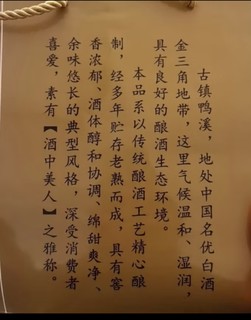 古镇鸭溪，地处中国名优白酒
金三角地带，这里气候温和、湿润，
具有良好的酿酒生态环境。
本品系以传统酿酒工艺精心酿
制，经多年贮存老熟而成，具有窖
香浓郁、酒体醇和协调、绵甜爽净、
余味悠长的典型风格，深受消费者
喜爱，素有【酒中美人】之雅称。